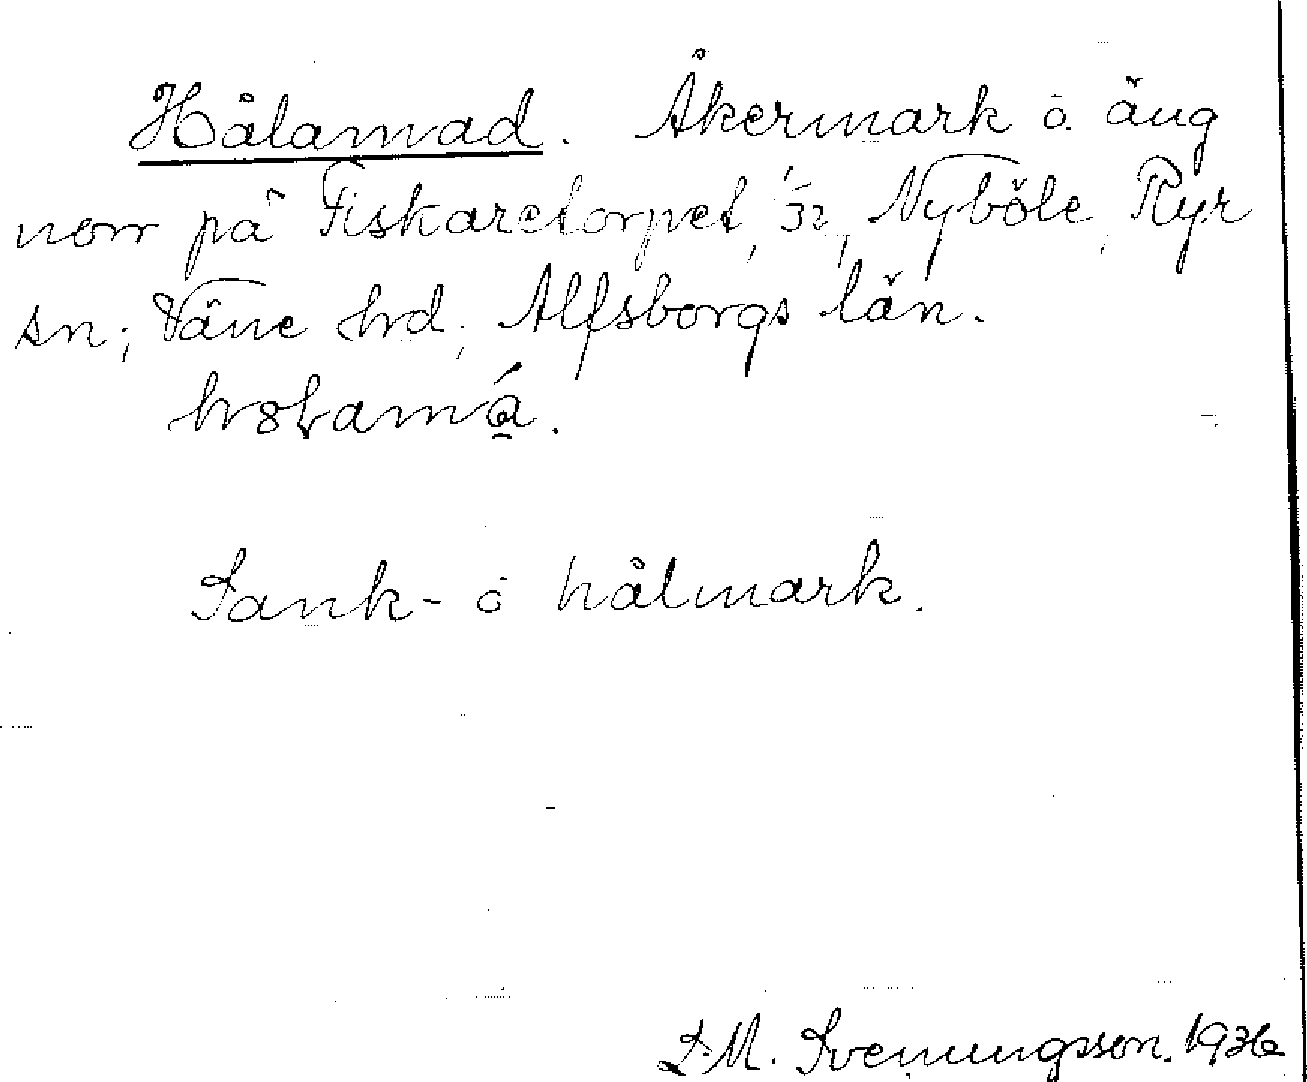 Hålamad. Åkermark o. äng
norr på Fiskaretorpet, 1/32, Nyböle, Ryr
sn; Väne hd; Älfsborgs län.
Sank- o hålmark.
S. M. Svenungsson. 1936